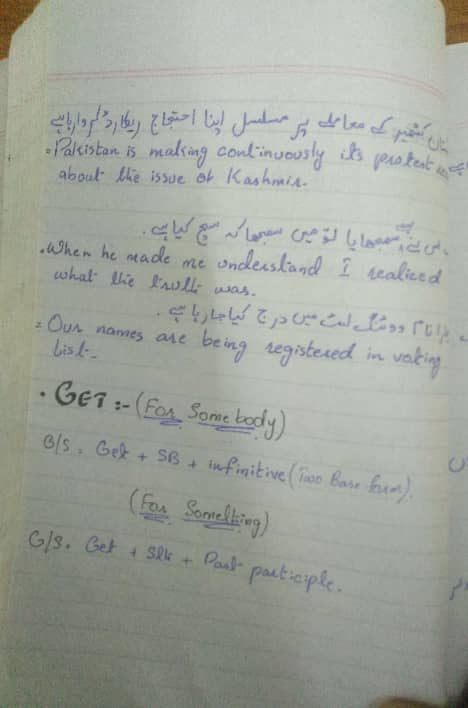 کشمیر کے معاملے پر مسلسل اپنا احتجاج ریکارڈ کروا رہا ہے
= Pakistan is making continuously its protest
about the issue of Kashmir.
سمجھایا تو میں سمجھا کہ سچ کیا ہے.
. When he made me understand I realized
what the truth was.
نام ووٹنگ لسٹ میں درج کیا جا رہا ہے.
= Our names are being registered in voting
list.
. GET :- (For Somebody)
G/S = Get + SB + infinitive (Two Base form).
(For Something)
G/S. Get + Sth + Past participle.